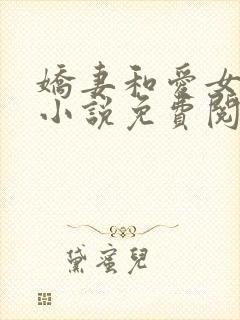 嬌妻和愛女
小說免費閱
黛蜜兒